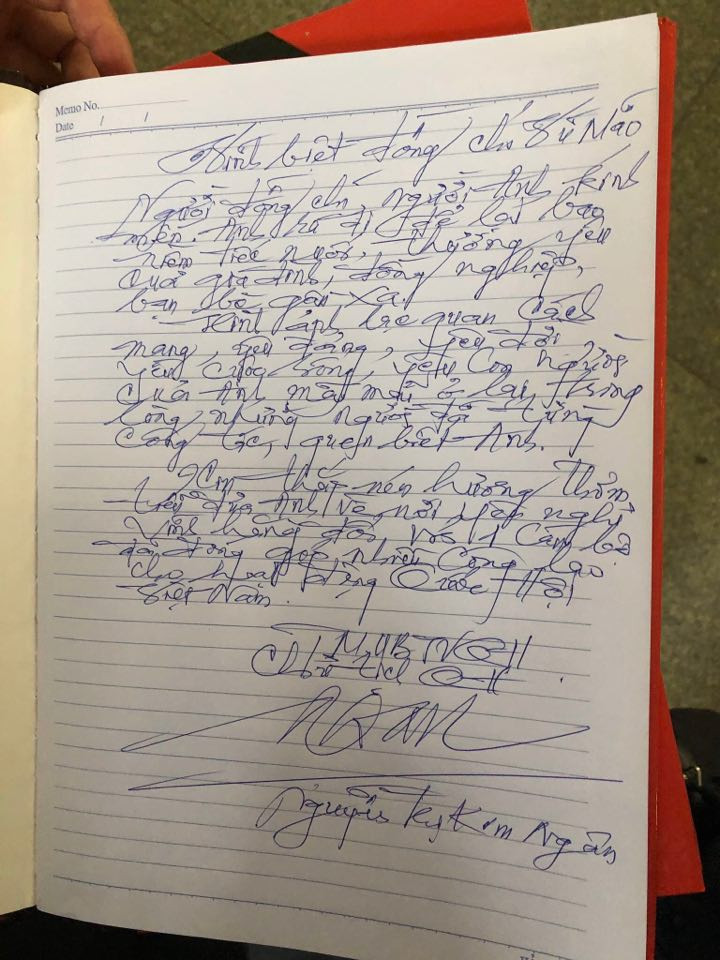 Memo No.
Date / /
Vĩnh biệt đồng chí Vũ Mão
Người đồng chí, người Anh kính
mến. Anh ra đi để lại bao
niềm tiếc nuối, thương yêu
của gia đình, đồng nghiệp,
bạn bè gần xa.
Hình ảnh lạc quan Cách
mạng, yêu đảng, yêu đời,
yêu cuộc sống, yêu con người
của Anh mãi mãi ở lại trong
lòng những người đã từng
công tác, quen biết Anh.
Xin thắp nén hương thơm
tiễn đưa Anh về nơi yên nghỉ
vĩnh hằng đối với 1 cán bộ
đã đóng góp nhiều công lao
cho hoạt động Quốc Hội
Việt Nam.
Chủ tịch QH
Ngân
Nguyễn Thị Kim Ngân